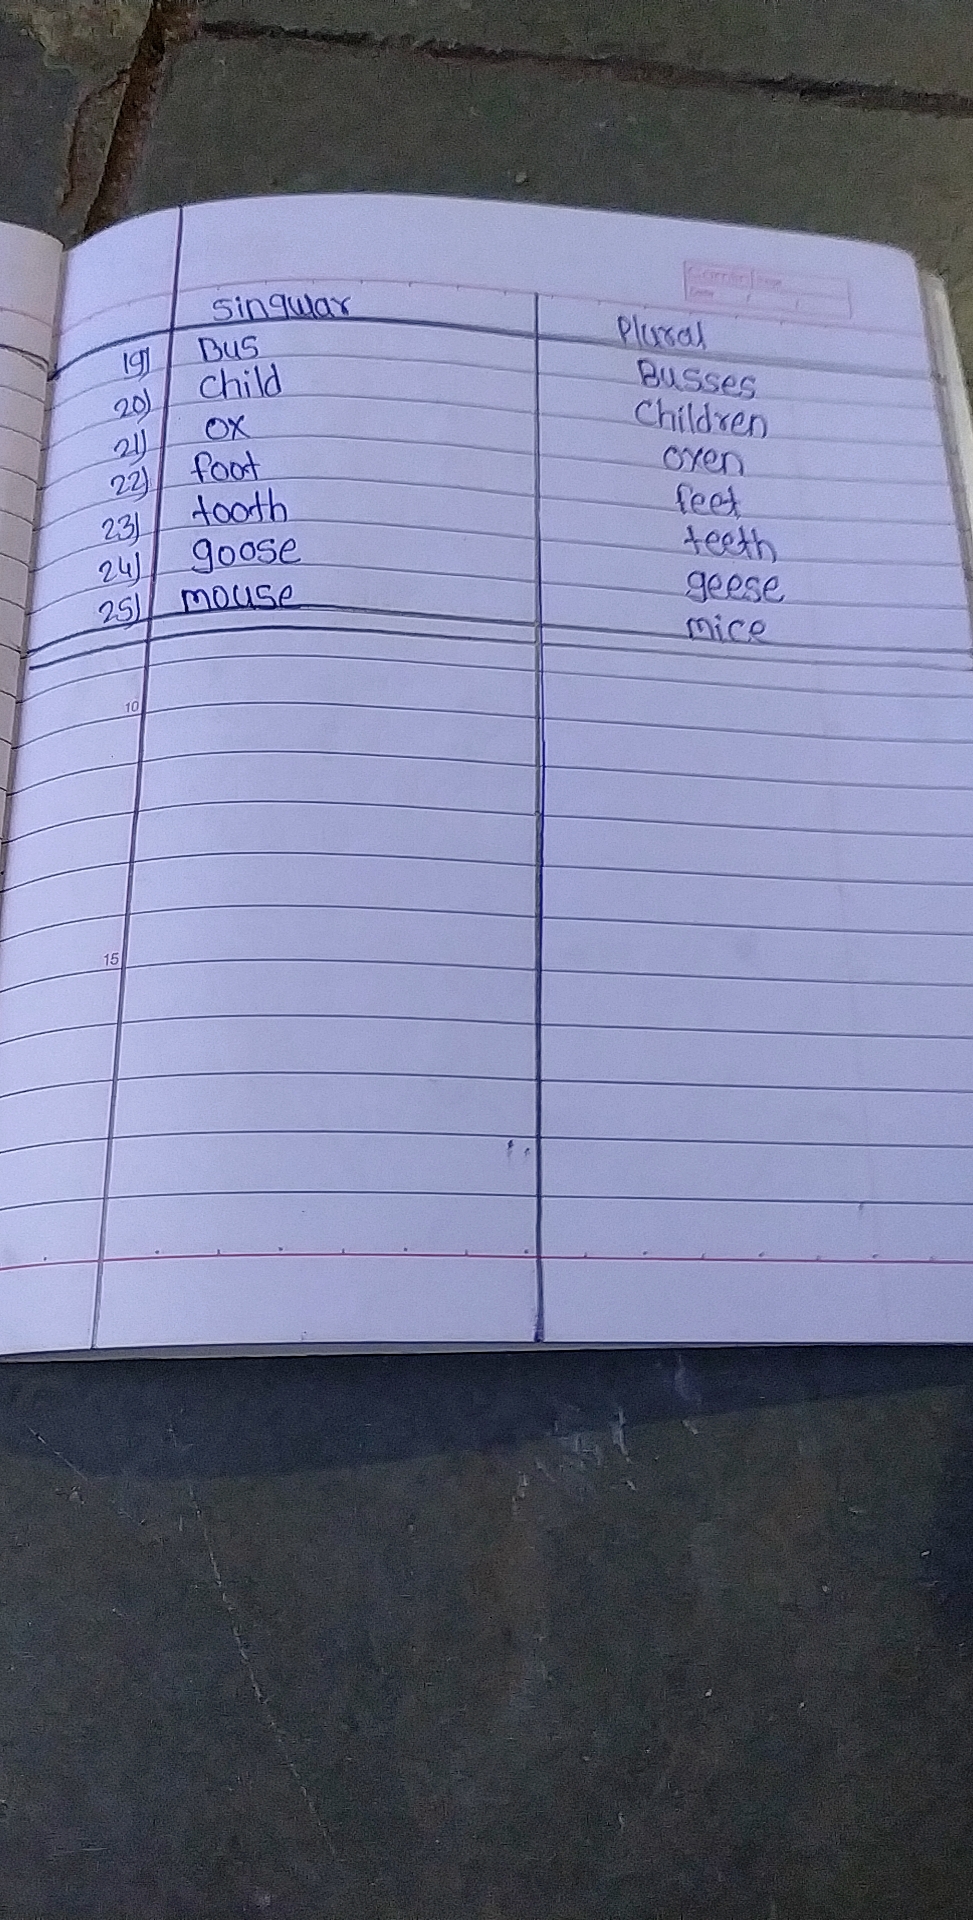 Singular Plural
19) Bus Busses
20) child Children
21) ox oxen
22) foot feet
23) tooth teeth
24) goose geese
25) mouse mice
10
15